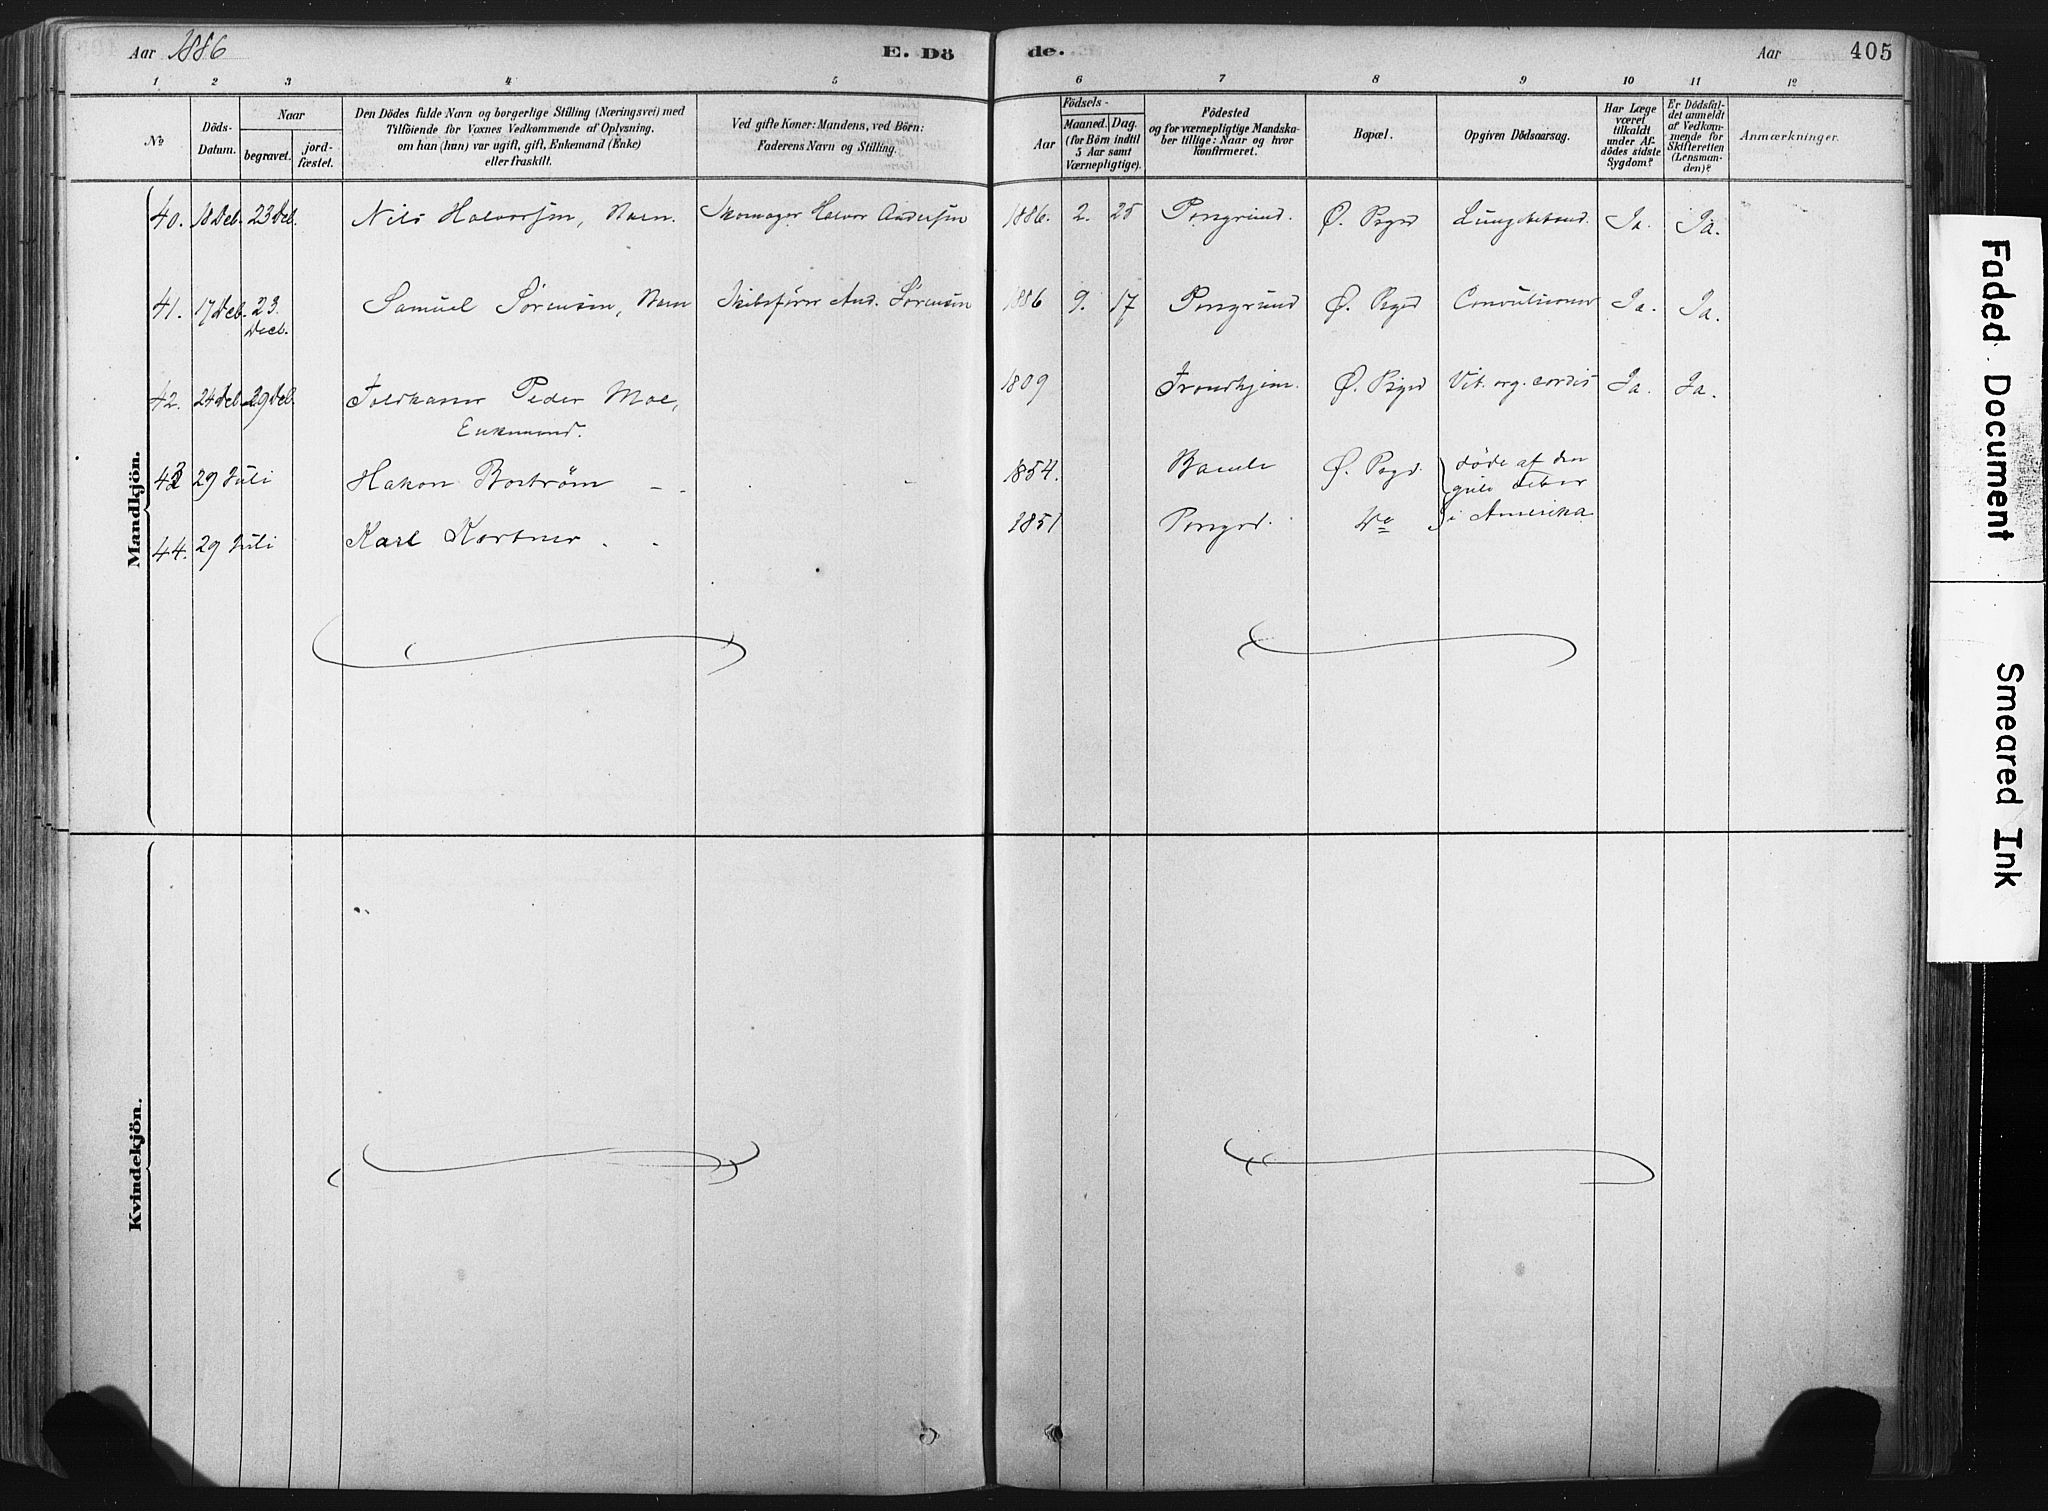 Aar 1886 E. Dö de. Aar 405
1 2 3 4 5 6 7 8 9 10 11 12
No
Döds-
Datum.
Naar
begravet.
jord-
fæstet.
Den Dödes fulde Navn og borgerlige Stilling (Næringsvei) med
Tilföiende for Voxnes Vedkommende af Oplysning,
om han (hun) var ugift, gift, Enkemand (Enke)
eller fraskilt.
Ved gifte Koner: Mandens, ved Börn:
Faderens Navn og Stilling.
Födsels-
Aar
Maaned. Dag.
(for Börn indtil
5 Aar samt
Værnepligtige).
Födested
og for værnepligtige Mandska-
ber tillige: Naar og hvor
konfirmeret.
Bopæl.
Opgiven Dödsaarsag.
Har Læge
været
tilkaldt
under Af-
dödes sidste
Sygdom?
Er Dödsfal-
det anmeldt
af Vedkom-
mende for
Skifteretten
(Lensman-
den)?
Anmærkninger.
Mandkjön.
40. 18 Deb. 23 Deb. Nils Halvorsen, Barn. Skomager Halvor Andersen 1886. 2. 25 Porsgrund. Ø. Psgrd Lungebetænd. Ja. Ja.
41. 17 Deb. 23. Decb. Samuel Sørensen, Barn Skibsfører And. Sørensen 1886 9. 17 Porsgrund Ø. Psgrd Convulsioner Ja. Ja.
42. 24 Deb. 29 Deb. Toldkasser Peder Moe, 1809 Trondhjem. Ø. Psgrd Vit. org. cordis Ja. Ja.
Enkemand.
43 29 Juli Hakon Boström - - 1854. Bamle Ø. Psgrd. døde af den
gule Feber
i Amerika
44. 29 Juli Karl Kortner - - 1851 Porsgrd. Do
Kvindekjön.
Faded Document
Smeared Ink